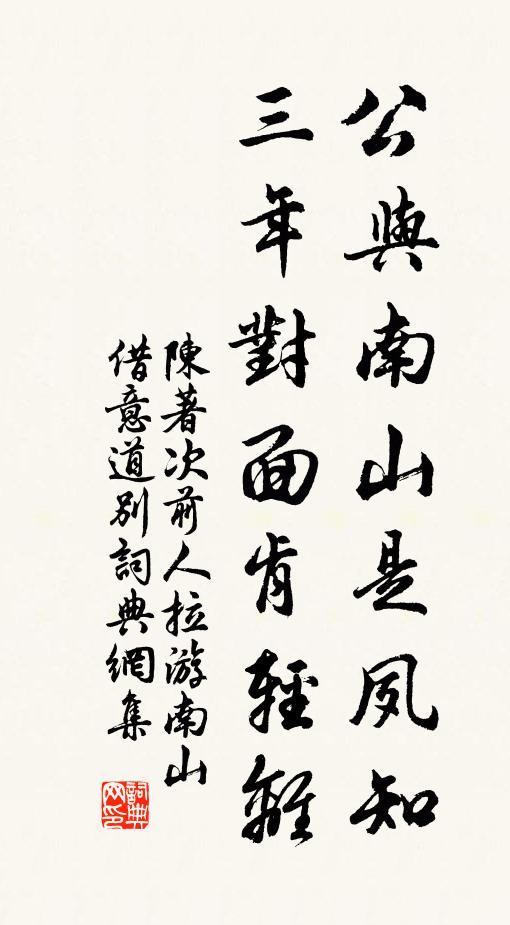 公與南山是夙知
三年對面肯輕離
陳著次前人拉游南山
借意道別詞典網集
詞典
网印